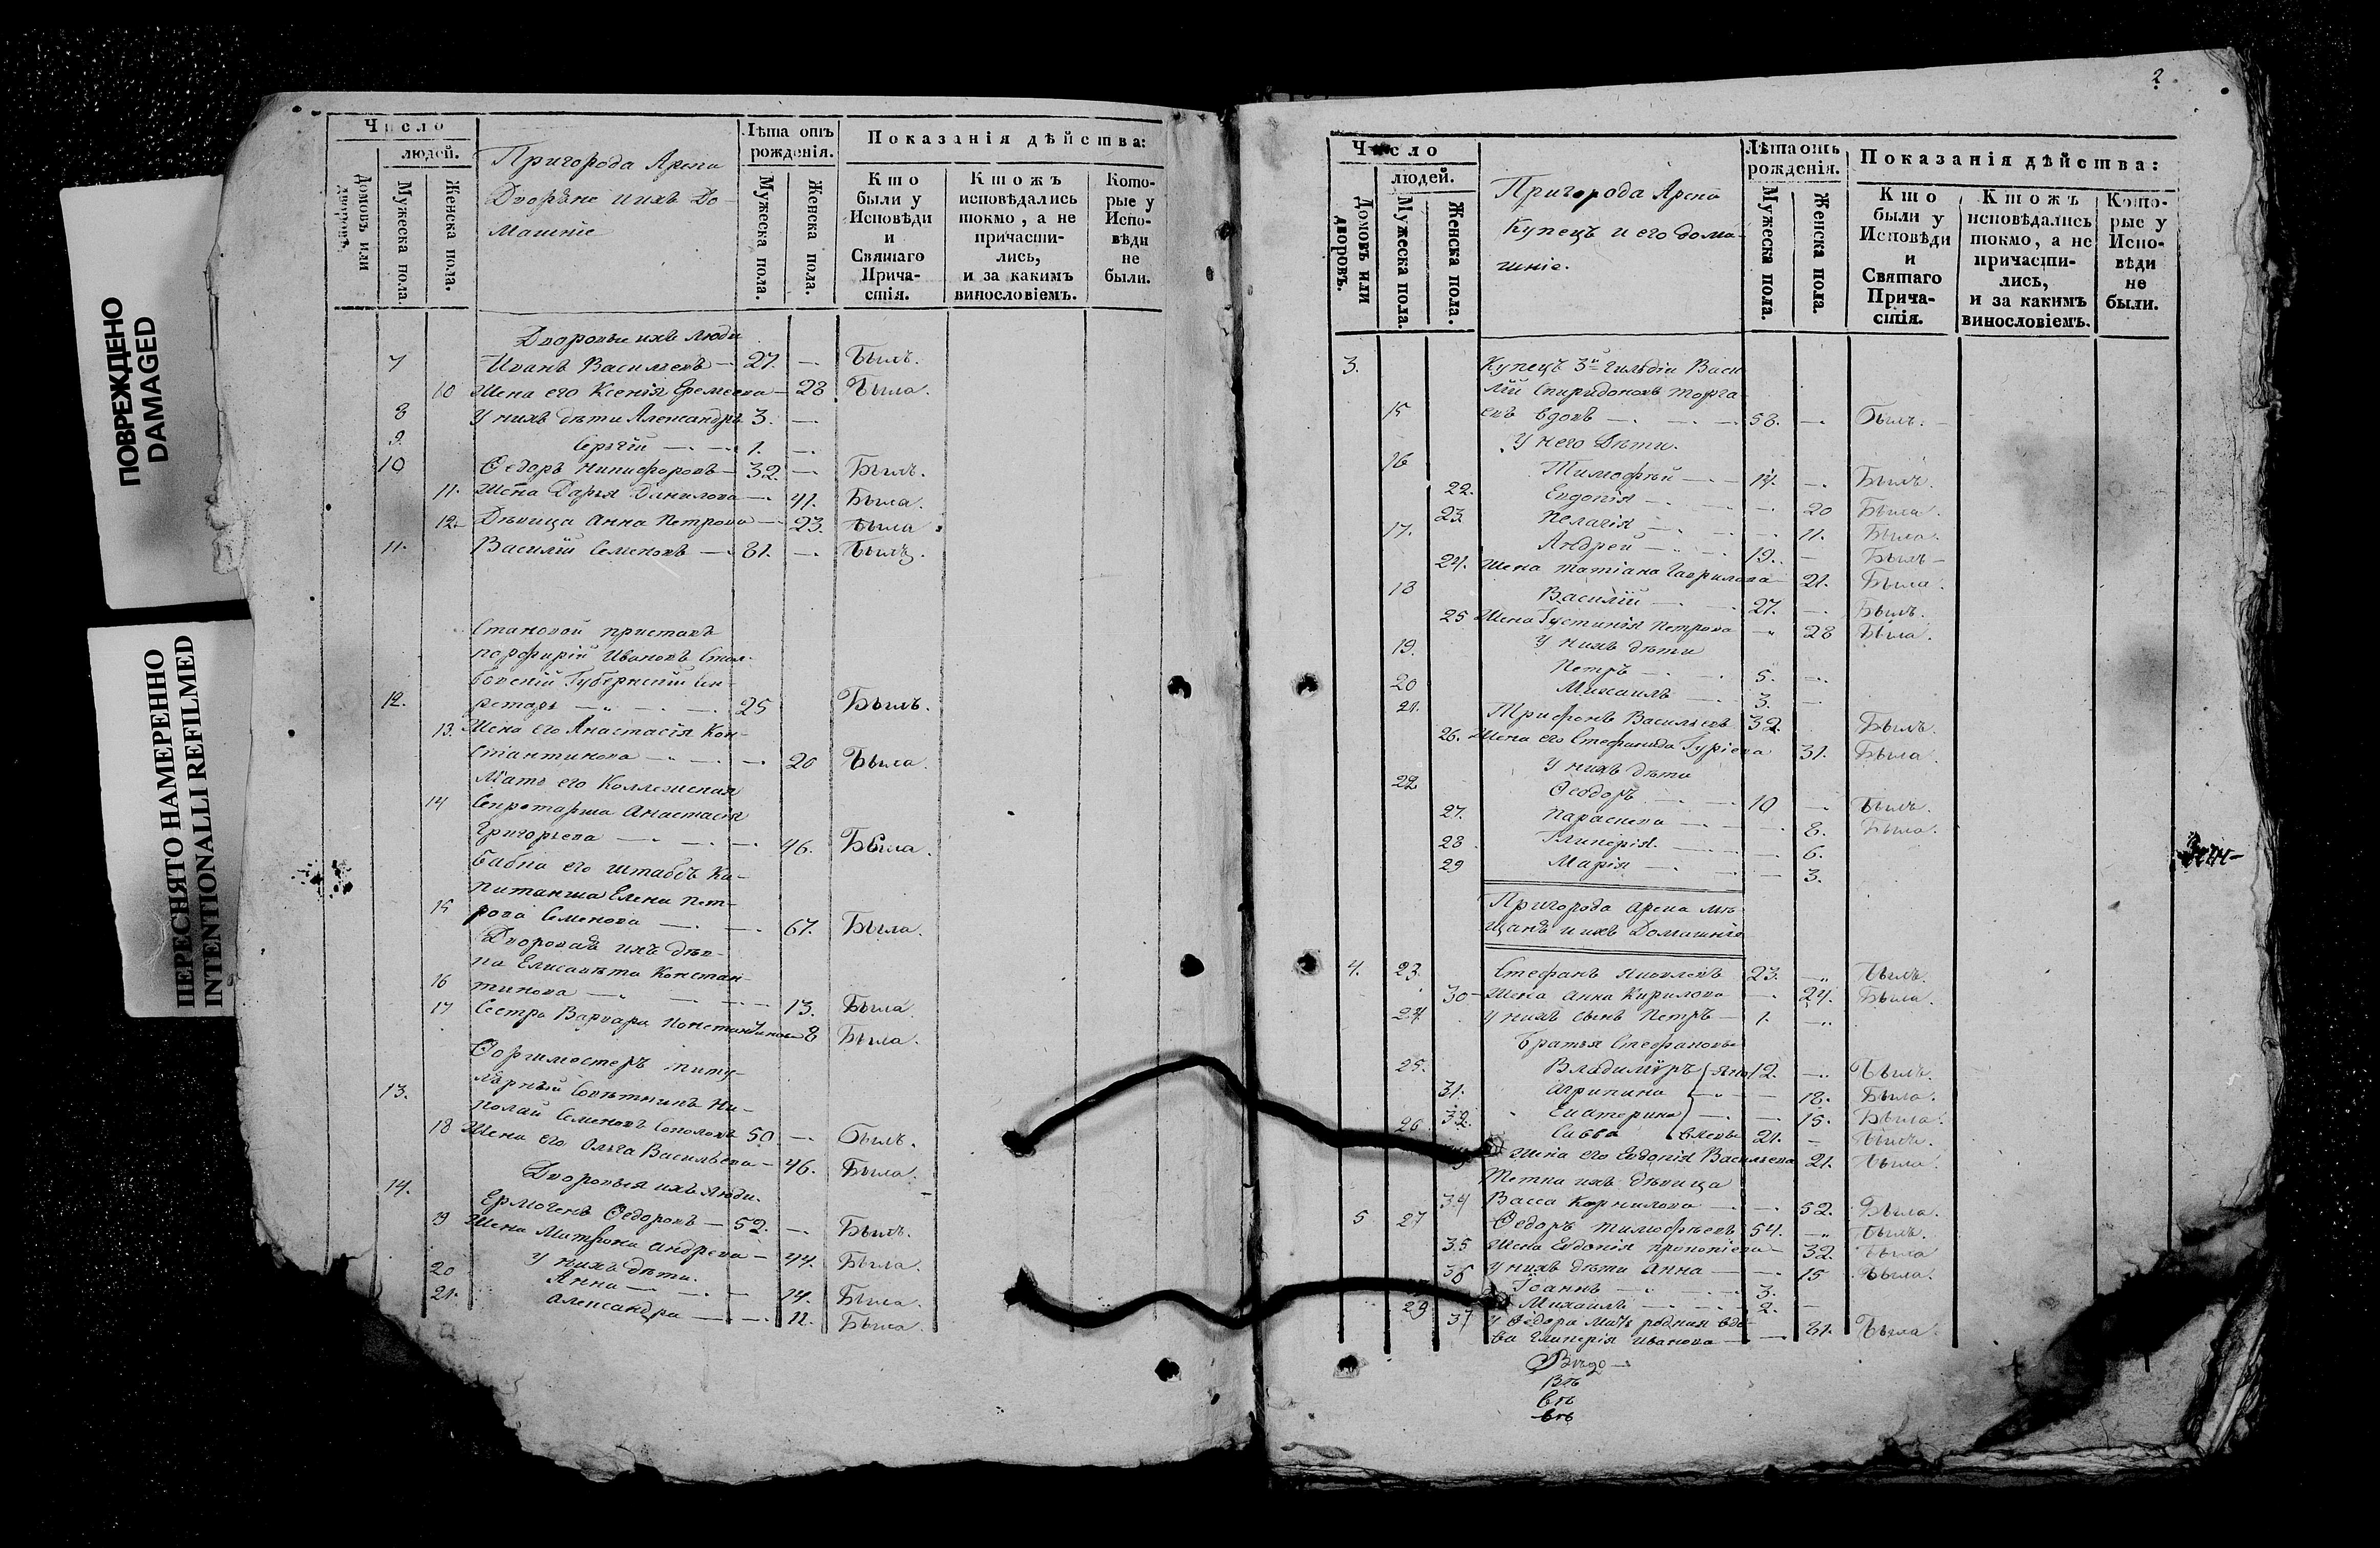 ПОВРЕЖДЕНО
DAMAGED
ПЕРЕСНЯТО НАМЕРЕННО
INTENTIONALLI REFILMED
Число
людей.
Домовъ или дворовъ.
Мужеска пола.
Женска пола.
Пригорода Арска
Дворѣне и ихъ До-
машніе
Лѣта отъ
рожденія.
Мужеска пола.
Женска пола.
Показанія дѣйства:
Кто
были у
Исповѣди
и
Святаго
Прича-
стія.
Ктожъ
исповѣдались
токмо, а не
причасти-
лись,
и за какимъ
винословіемъ.
Кото-
рые у
Испо-
вѣди
не
были.
Дворовые ихъ люди
7 Иванъ Васильевъ — 27. — Былъ.
10 Жена его Ксенія Еремеева — 28 Была.
8 У нихъ дѣти Александръ 3. —
9. Сергѣй — 1. —
10 Ѳедоръ Никифоровъ — 32. — Былъ.
11. Жена Дарья Данилова — 41. Была.
12. Дѣвица Анна Петрова — 23. Была
11. Василій Семеновъ — 81. — Былъ.
Становой приставъ
Порфирій Ивановъ
Губернскій Сек-
12. ретарь — 25 Былъ.
13. Жена его Анастасія Кон-
стантинова — 20 Была.
Мать его Коллежская
14 Секретарша Анастасія
Григорьева — 46. Была.
Бабка его Штабсъ Ка-
питанша Елена Пет-
15 рова Семенова — 67. Была.
Дворовая ихъ дѣв-
ка Елисавѣта Констан-
16 тинова — 13. Была.
17 Сестра Варвара Константинова 8 Была.
Форшмейстеръ титу-
лярный Совѣтникъ Ни-
13. колай Семеновъ Соколовъ 50 — Былъ.
18 Жена его Ольга Васильева — 46. Была.
Дворовыя ихъ люди.
14. Ермогенъ Ѳедоровъ — 52. — Былъ.
19 Жена Матрона Андреева — 44. Была.
У нихъ дѣти.
20 Анна — 14. Была.
21. Александра — 11. Была.
2
Число
людей.
Домовъ или дворовъ.
Мужеска пола.
Женска пола.
Пригорода Арска
Купецъ и его дома-
шніе.
Лѣта отъ
рожденія.
Мужеска пола.
Женска пола.
Показанія дѣйства:
Кто
были у
Исповѣди
и
Святаго
Прича-
стія.
Ктожъ
исповѣдались
токмо, а не
причасти-
лись,
и за какимъ
винословіемъ.
Кото-
рые у
Испо-
вѣди
не
были.
3. Купецъ 3й Гильдіи Васи
лій Спиридоновъ Торга
15 евъ вдовъ — 58. — Былъ.
У него Дѣти.
16 Тимофѣй — 14. — Былъ.
22. Евдокія — 20 Была.
23 Пелагія — 11. Была.
17. Андрей — 19. — Былъ
24. Жена Татіана Гаврилова — 21. Была.
18 Василій — 27. — Былъ.
25 Жена Густинія Петрова — 28 Была.
У нихъ дѣти
19. Петръ — 5. —
20 Михаилъ — 3. —
21. Трифонъ Васильевъ 32. Былъ.
26. Жена его Стефанида Гуріева 31. Была.
У нихъ дѣти
22 Ѳеодоръ — 10 — Былъ.
27. Параскева — 8. Была.
28 Гликерія — 6.
29 Марія — 3.
Пригорода Арска мѣ
щанѣ и ихъ Домашніе
4. 23. Стефанъ Яковлевъ 23. — Былъ.
30 Жена Анна Кирилова — 24. Была.
24. У нихъ сынъ Петръ — 1. —
Братья Стефановы
25. Владиміръ Яко 12. — Былъ.
31. Агрипина — 18. Была.
32. Екатерина — 15. Была.
26 Савва влевы 21. — Былъ.
Жена его Евдокія Васильева 21. Была.
Тетка ихъ дѣвица
34 Васса Корнилова — 52. Была.
5 27 Ѳедоръ Тимофѣевъ 54. — Былъ.
35 Жена Евдокія Прокопіева — 32. Была
36 У нихъ дѣти Анна — 15 Была.
Іоаннъ — 3.
29 Михаилъ — 2. —
37 У Ѳедора Мать родная вдо
ва Гликерія Иванова — 81. Была.